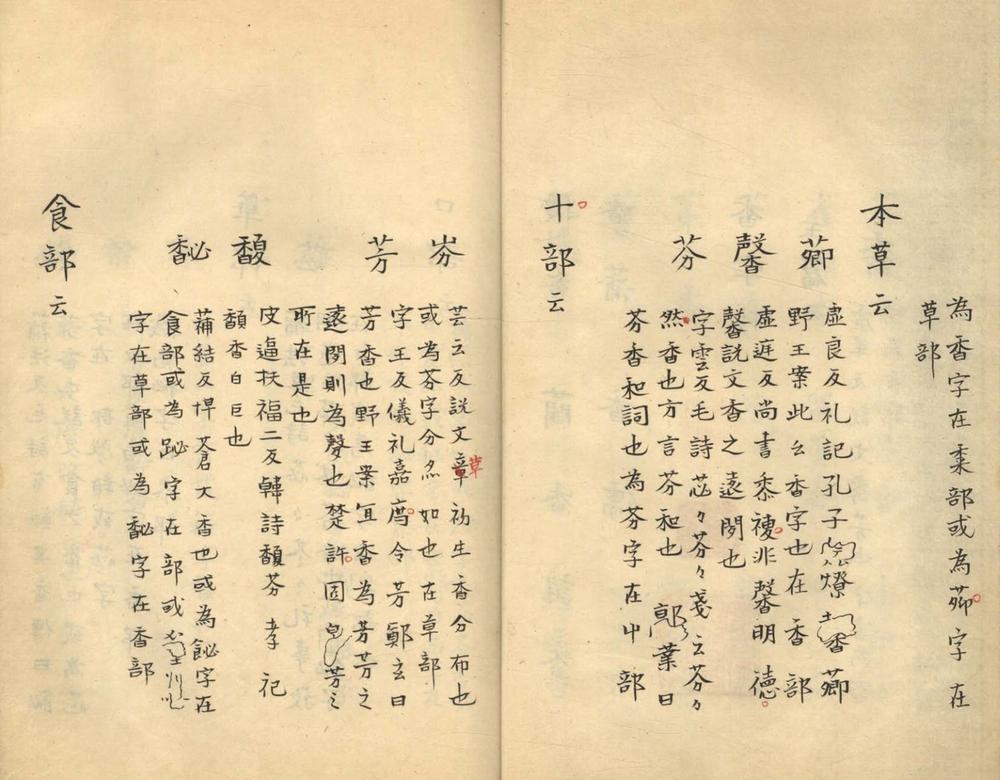 為香字在柔部或為薌字在
草部
本草云
薌
虛良反礼記孔子燎香薌
野王案此幺香字也在香部
馨
虛逛反尚書黍稷非馨明德
馨說文香之遠閗也
芬
字雲反毛詩苾々芬々戔云芬々
然香也方言芬和也郭業曰
芬香和詞也為芬字在屮部
十部云
岑
芸云反說文章草初生香分布也
或為芬字分如也在草部
芳
字王反儀礼嘉席令芳鄭玄曰
芳香也野王案宜香為芳芳之
遠閗則為聲也楚許固芳之
所在是也
馥
皮逼扶福二反韓詩馥芬孝祀
馥香白巨也
䭱
蒱結反悍蒼大香也或為飶字在
食部或為䟤字在部或
字在草部或為馝字在香部
食部云